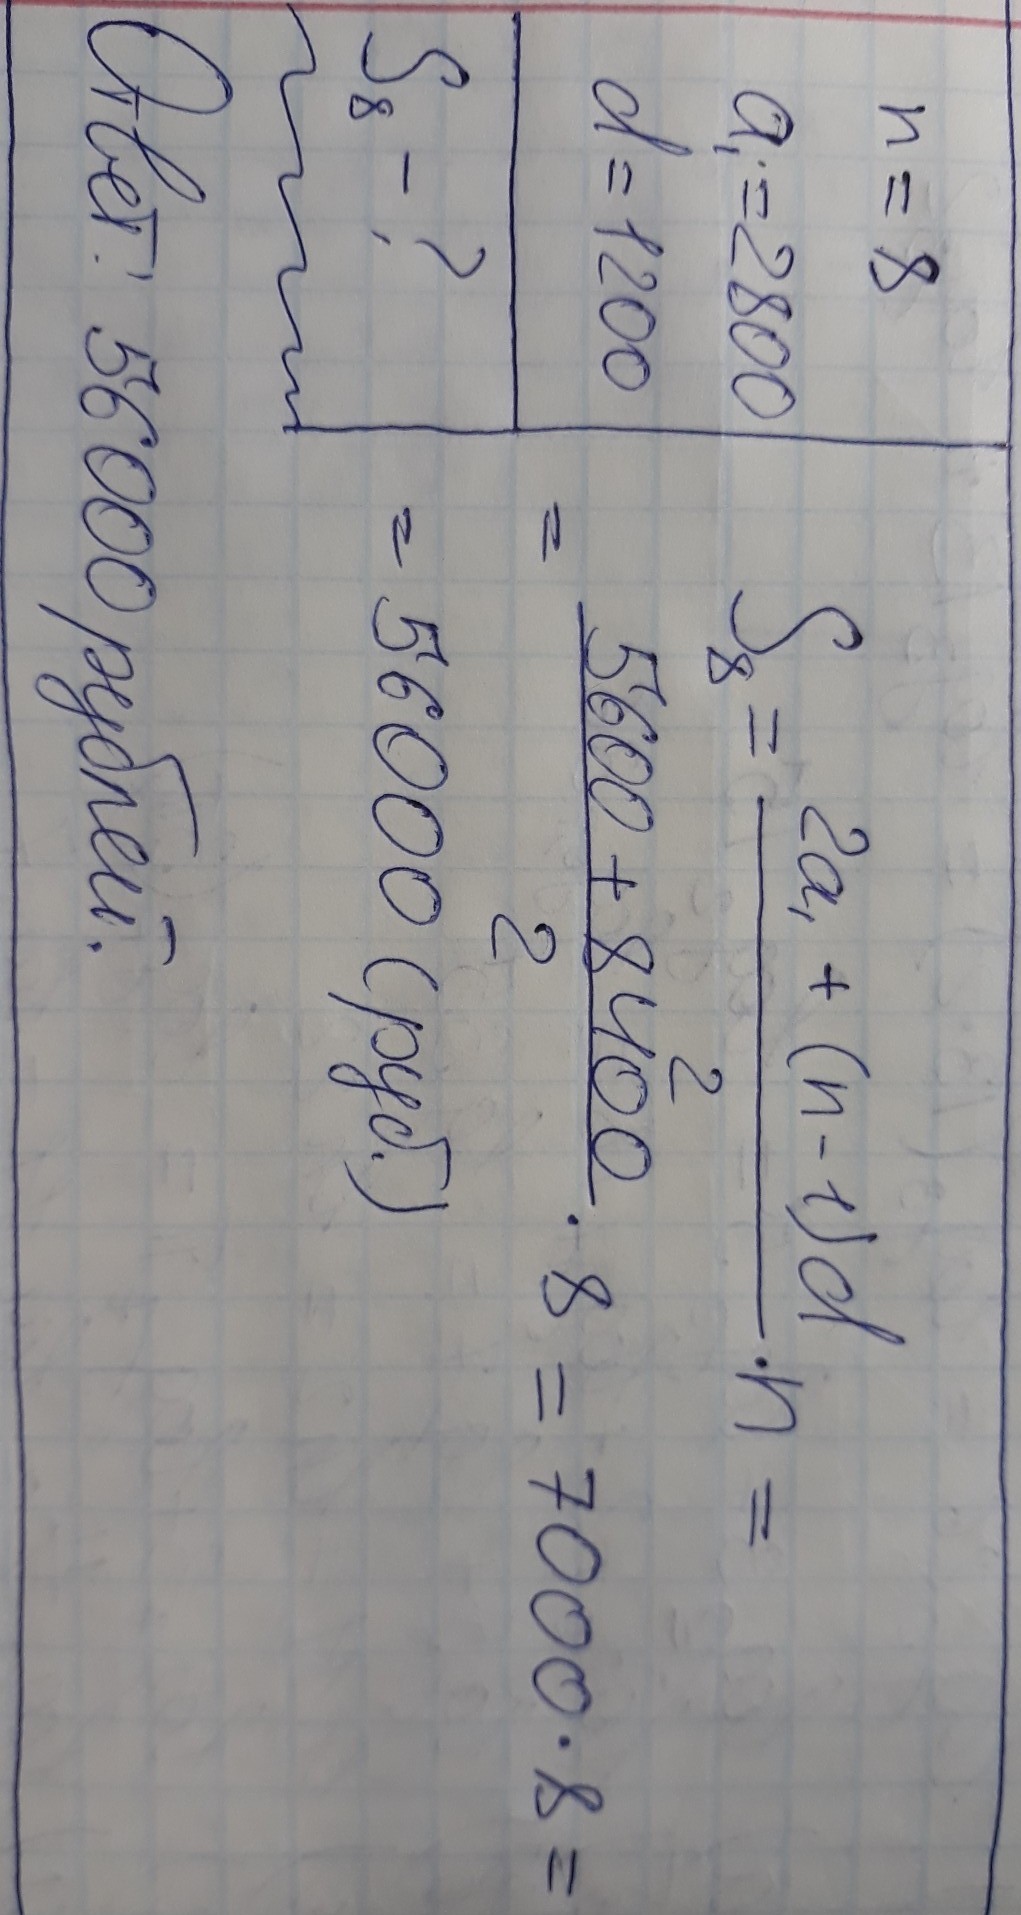 n = 8
a₁ = 2800
d = 1200
S₈ - ?
S₈ = (2a₁ + (n - 1)d)/2 · n =
= (5600 + 8400)/2 · 8 = 7000 · 8 =
= 56000 (руб.)
Ответ: 56000 рублей.